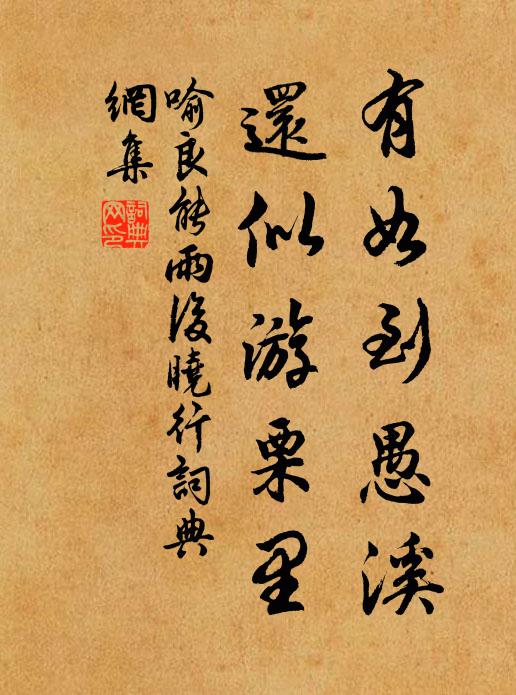 有如到愚溪
還似游栗里
喻良能雨後曉行詞典
網集
詞典网印